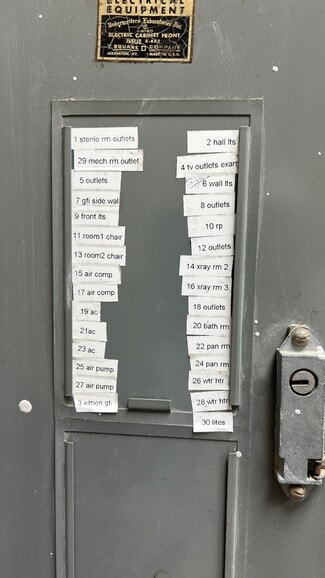 ELECTRICAL
EQUIPMENT
Underwriters' Laboratories, Inc.
ELECTRIC CABINET FRONT
SQUARE D COMPANY
MADE IN U.S.A.
1 sterile rm outlets
29 mech rm outlet
5 outlets
7 gfi side wal
9 front lts
11 room1 chair
13 room2 chair
15 air comp
17 air comp
19 ac
21ac
23 ac
25 air pump
27 air pump
2 hall lts
4 tv outlets exam
6 wall lts
8 outlets
10 rp
12 outlets
14 xray rm 2
16 xray rm 3
18 outlets
20 bath rm
22 pan rm
24 pan rm
26 wtr htr
28 wtr htr
30 lites